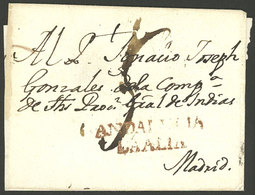 Al P. Ignacio Joseph
Gonzales de la Comp.a
de Jhs Proc.r Gral de Indias
ANDALUCIA
BAXA
Madrid.